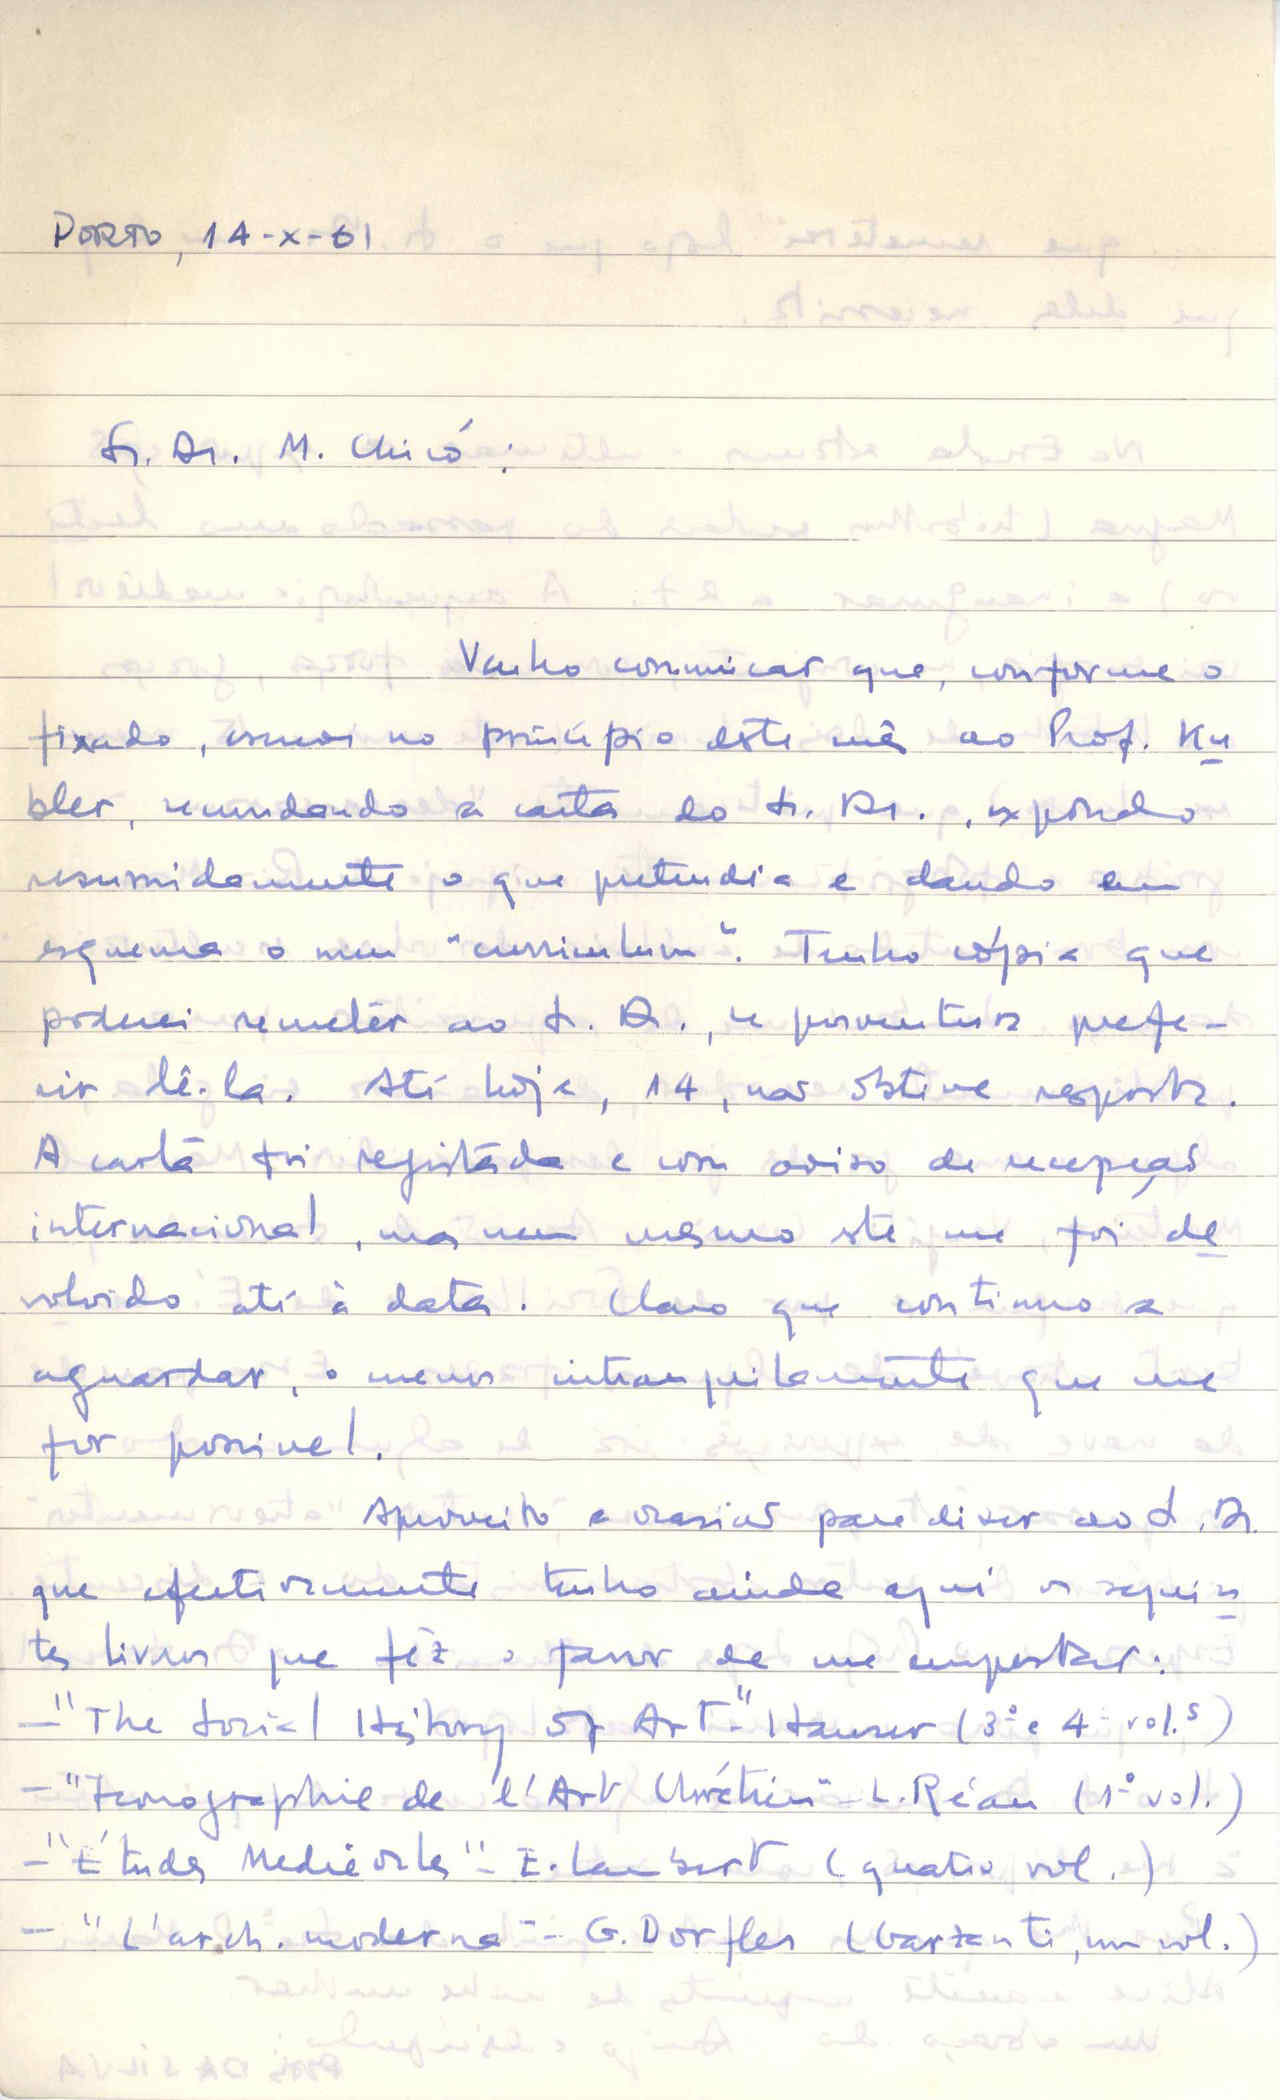 Porto, 14-X-61
Sr. Dr. M. Chicó:
Venho comunicar que, conforme o
fixado, escrevi no princípio deste mês ao Prof. Ku
bler, secundando a carta do Sr. Dr., expondo
resumidamente o que pretendia e dando em
esquema o meu "curriculum". Tenho cópia que
poderei remeter ao Sr. Dr., se porventura prefe-
rir lê-la. Até hoje, 14, não obtive resposta.
A carta foi registada e com aviso de recepção
internacional, mas nem mesmo este me foi de
volvido até à data. Claro que continuo a
aguardar, o menos intranquilamente que me
for possivel.
Aproveito a ocasião para dizer ao Sr. Dr.
que efectivamente tenho ainda aqui os seguin
tes livros que fêz o favor de me emprestar:
- "The Social History of Art" - Hauser (3º e 4º vol.s)
- "Iconographie de l'Art Chrétien" - L. Réau (1º vol.)
- "Études Mediévales" - E. Lambert (quatro vol.)
- "L'arch. moderna" - G. Dorfles (Garzanti, um vol.)